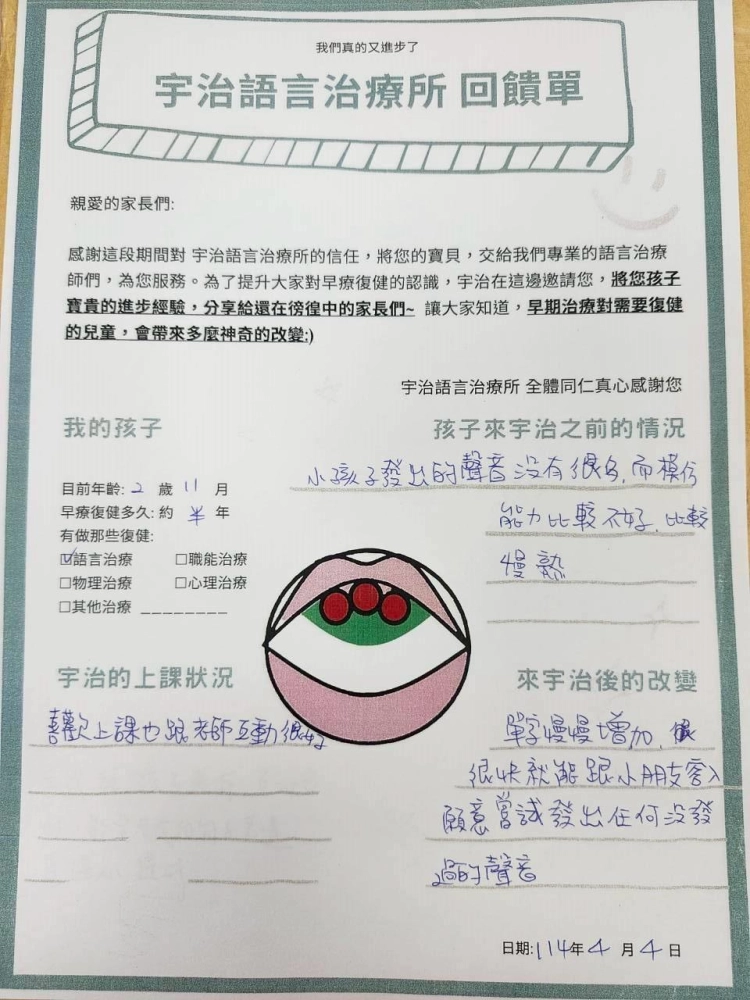 我們真的又進步了
宇治語言治療所 回饋單
親愛的家長們:
感謝這段期間對 宇治語言治療所的信任，將您的寶貝，交給我們專業的語言治療
師們，為您服務。為了提升大家對早療復健的認識，宇治在這邊邀請您，將您孩子
寶貴的進步經驗，分享給還在徬徨中的家長們~ 讓大家知道，早期治療對需要復健
的兒童，會帶來多麼神奇的改變:)
宇治語言治療所 全體同仁真心感謝您
我的孩子
目前年齡: 2 歲 11 月
早療復健多久: 約 半 年
有做那些復健:
☑語言治療 □職能治療
□物理治療 □心理治療
□其他治療 ________
孩子來宇治之前的情況
小孩子發出的聲音没有很多,而模仿
能力比較不好,比較
慢熟
宇治的上課狀況
喜歡上課也跟老師互動很好
來宇治後的改變
單字慢慢增加,
很快就能跟小朋友容入
願意嘗試發出任何没發
過的聲音
日期:114年4月4日